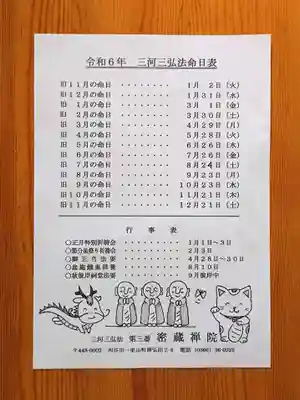 令和6年 三河三弘法命日表
旧11月の命日 ・・・・・・・・ 1月 2日(火)
旧12月の命日 ・・・・・・・・ 1月31日(水)
旧 1月の命日 ・・・・・・・・ 3月 1日(金)
旧 2月の命日 ・・・・・・・・ 3月30日(土)
旧 3月の命日 ・・・・・・・・ 4月29日(月)
旧 4月の命日 ・・・・・・・・ 5月28日(火)
旧 5月の命日 ・・・・・・・・ 6月26日(水)
旧 6月の命日 ・・・・・・・・ 7月26日(金)
旧 7月の命日 ・・・・・・・・ 8月24日(土)
旧 8月の命日 ・・・・・・・・ 9月23日(月)
旧 9月の命日 ・・・・・・・・ 10月23日(水)
旧10月の命日 ・・・・・・・・ 11月21日(木)
旧11月の命日 ・・・・・・・・ 12月21日(土)
行事表
○正月特別祈祷会 ・・・・・・ 1月1日~3日
○節分星祭り祈祷会 ・・・・・・ 2月3日
○御正当法要 ・・・・・・ 4月28日~30日
○施餓鬼 ・・・・・・ 8月10日
○秋彼岸祠堂法要 ・・・・・・ 9月彼岸中
三河三弘法 第三番 密蔵禅院
〒448-0002 刈谷市一里山町 電話(0566)